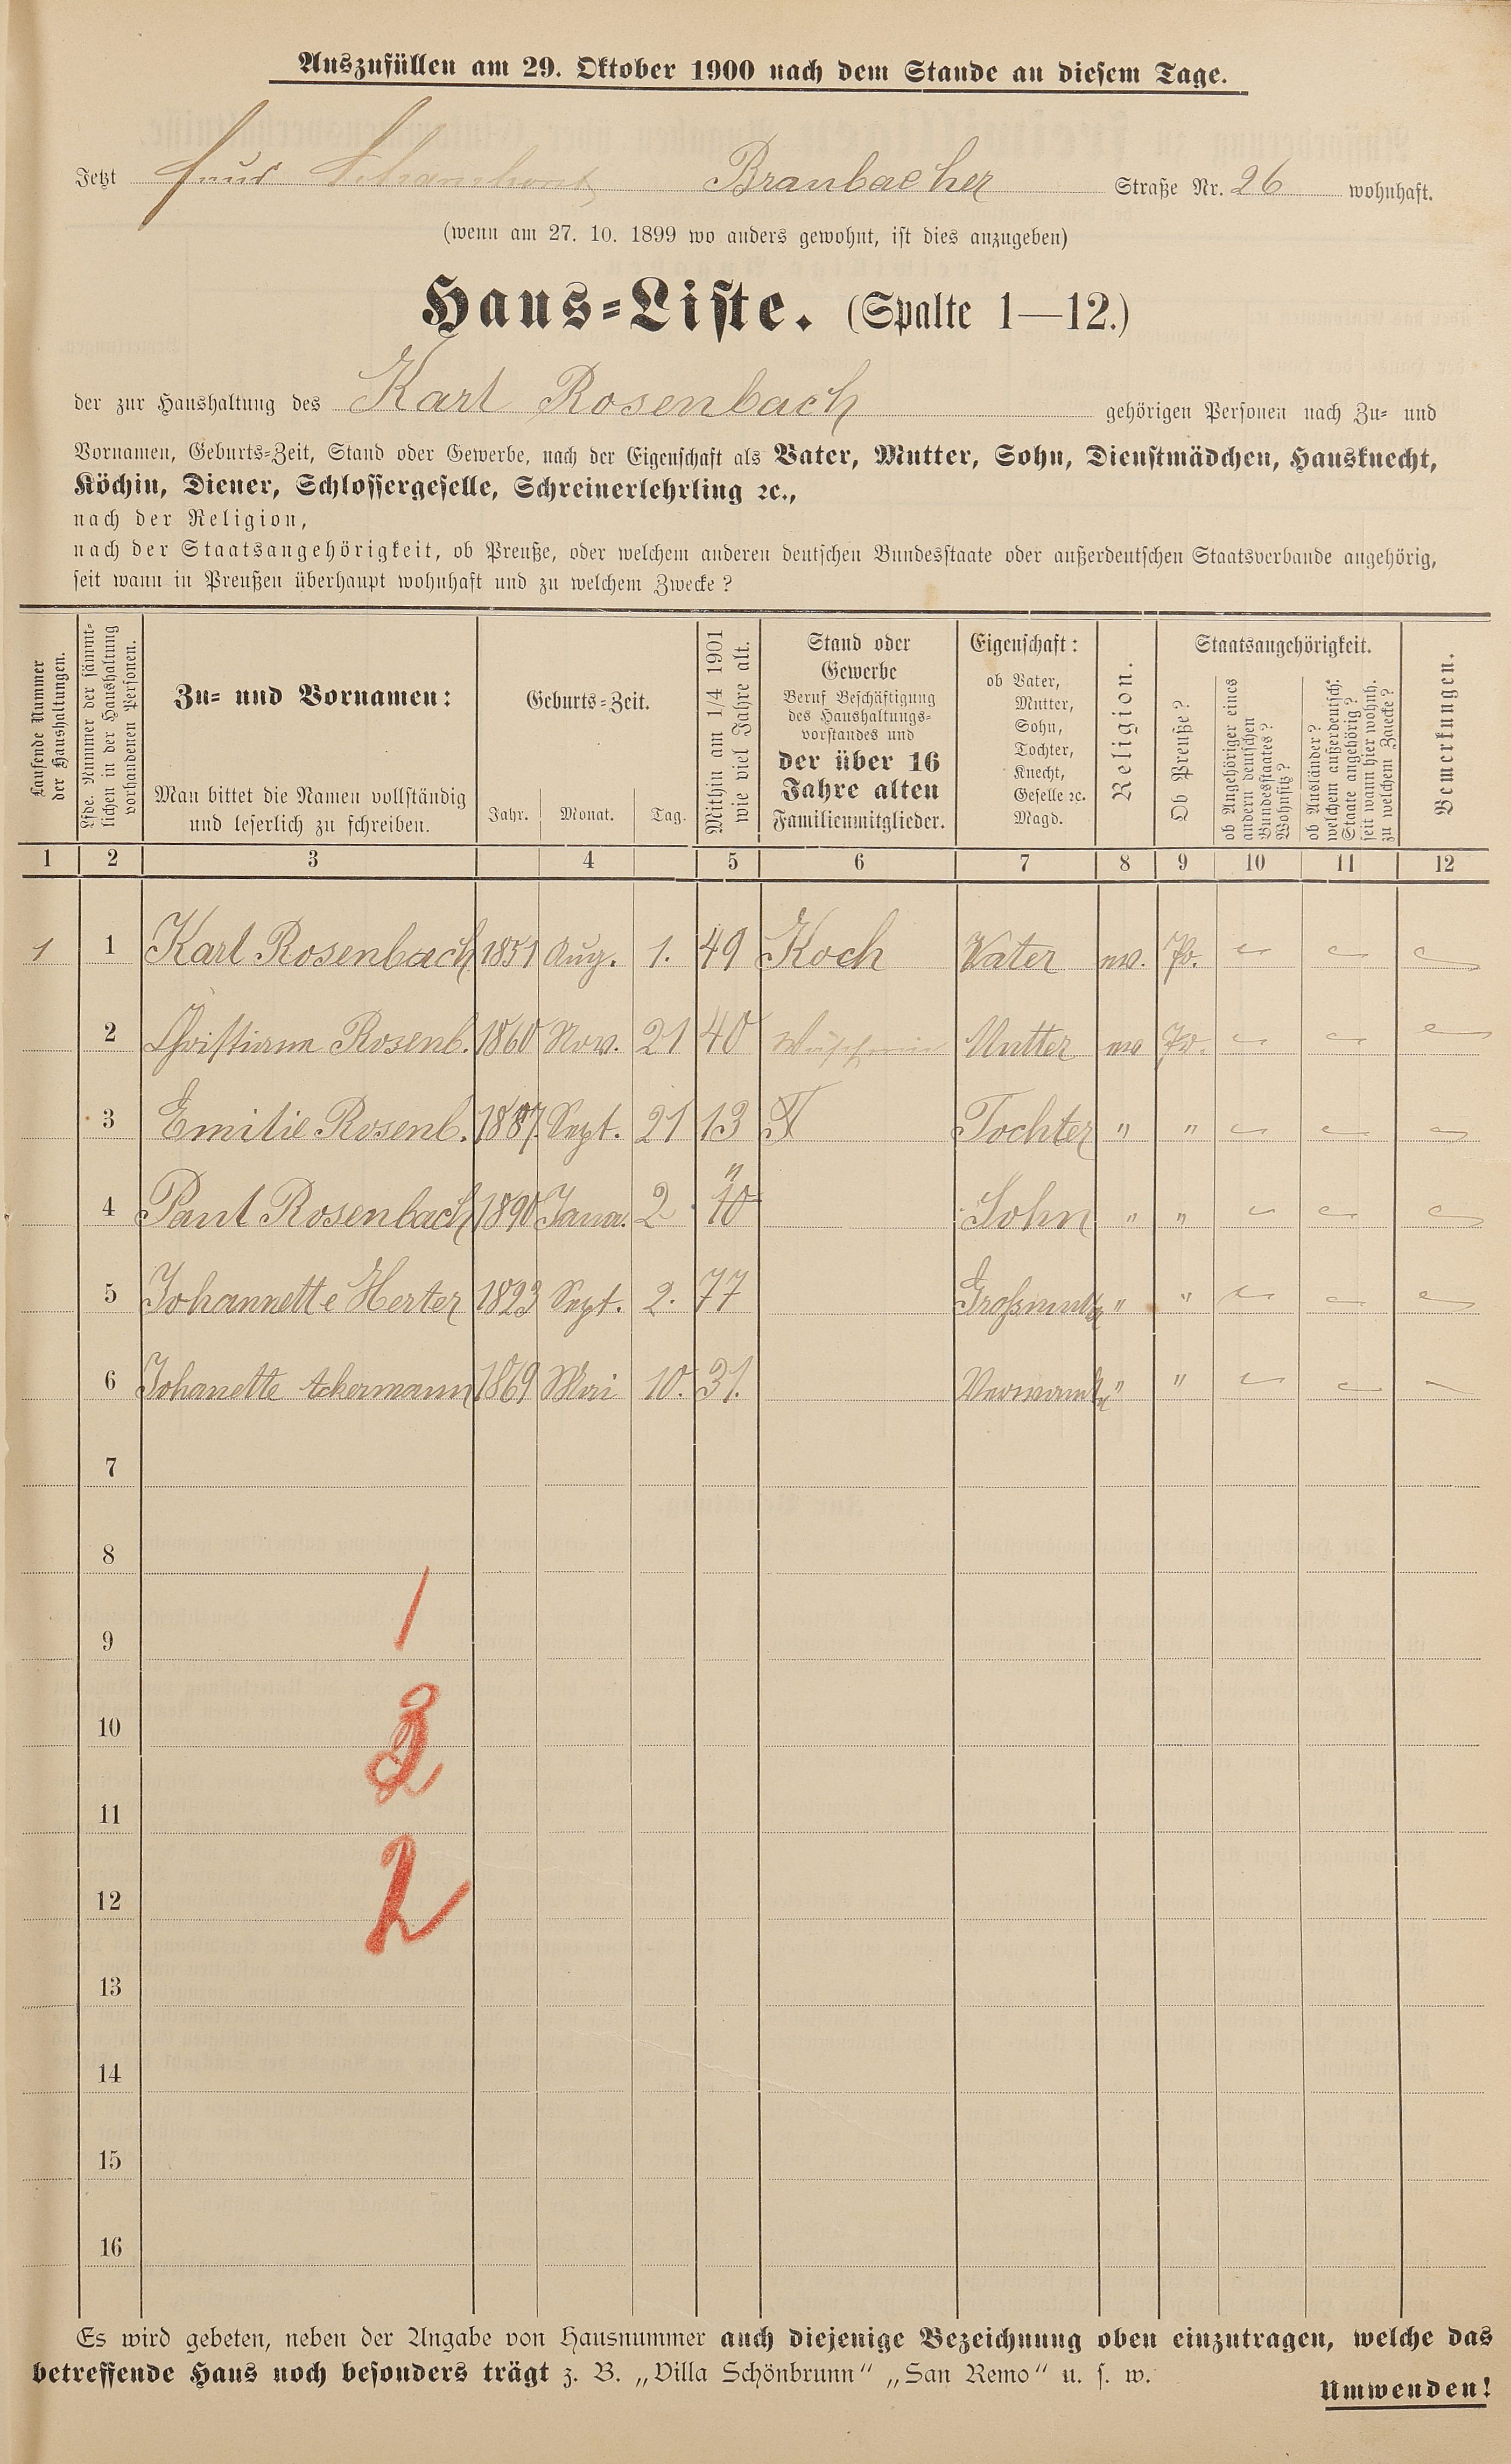 Auszufüllen am 29. Oktober 1900 nach dem Stande an diesem Tage.
Jetzt Haus Schaumbont Braubacher Straße Nr. 26 wohnhaft.
(wenn am 27. 10. 1899 wo anders gewohnt, ist dies anzugeben)
Haus-Liste. (Spalte 1—12.)
der zur Haushaltung des Karl Rosenbach gehörigen Personen nach Zu- und
Vornamen, Geburts-Zeit, Stand oder Gewerbe, nach der Eigenschaft als Vater, Mutter, Sohn, Dienstmädchen, Hausknecht,
Köchin, Diener, Schlossergeselle, Schreinerlehrling ꝛc.,
nach der Religion,
nach der Staatsangehörigkeit, ob Preuße, oder welchem anderen deutschen Bundesstaate oder außerdeutschen Staatsverbande angehörig,
seit wann in Preußen überhaupt wohnhaft und zu welchem Zwecke?
Laufende Nummer
der Haushaltungen.
Lfde. Nummer der sämmt-
lichen in der Haushaltung
vorhandenen Personen.
Zu- und Vornamen:
Man bittet die Namen vollständig
und leserlich zu schreiben.
Geburts-Zeit.
Jahr. Monat. Tag.
Mithin am 1/4 1901
wie viel Jahre alt.
Stand oder
Gewerbe
Beruf Beschäftigung
des Haushaltungs-
vorstandes und
der über 16
Jahre alten
Familienmitglieder.
Eigenschaft:
ob Vater,
Mutter,
Sohn,
Tochter,
Knecht,
Geselle ꝛc.
Magd.
Religion.
Staatsangehörigkeit.
Ob Preuße?
ob Angehöriger eines
andern deutschen
Bundesstaates?
Wohnsitz?
ob Ausländer?
welchem außerdeutsch.
Staate angehörig?
seit wann hier wohnh.
zu welchem Zwecke?
Bemerkungen.
1 2 3 4 5 6 7 8 9 10 11 12
1 1 Karl Rosenbach 1851 Aug. 1. 49 Koch Vater ev. Pr.
2 Christiane Rosenb. 1860 Nov. 21 40 Mutter ev Pr.
3 Emilie Rosenb. 1887 Sept. 21 13 Tochter " "
4 Paul Rosenbach 1890 Janu. 2 10 Sohn " "
5 Johannette Herter 1823 Sept. 2. 77 Großmutter " "
6 Johanette Ackermann 1869 Mai 10. 31. Verwandte " "
7
8
9
1
10
11
2
12
13
14
15
16
Es wird gebeten, neben der Angabe von Hausnummer auch diejenige Bezeichnung oben einzutragen, welche das
betreffende Haus noch besonders trägt z. B. „Villa Schönbrunn“ „San Remo“ u. s. w.
Umwenden!